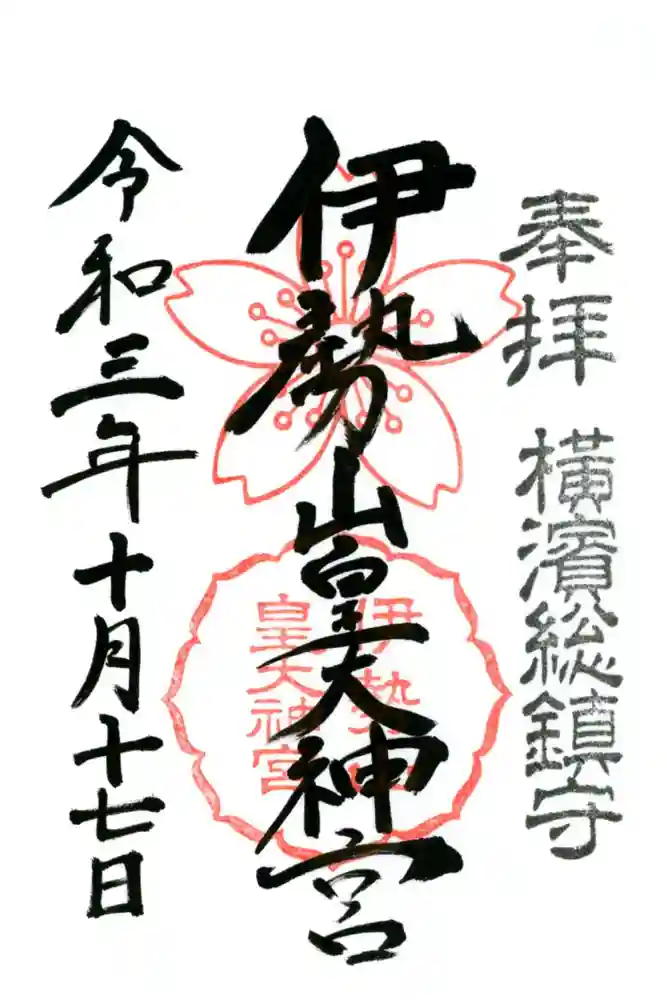 奉拝 横濱総鎮守
伊勢山皇大神宮
伊勢山
皇大神宮
令和三年十月十七日